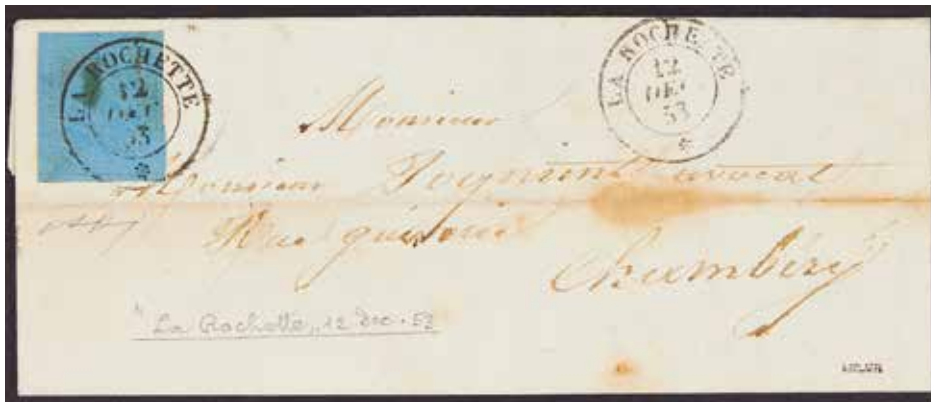 LA ROCHETTE
12
DEC
53
LA ROCHETTE
12
DEC
53
Monsieur
Monsieur avocat
Rue
Chambéry
"La Rochette, 12 Dec. 53